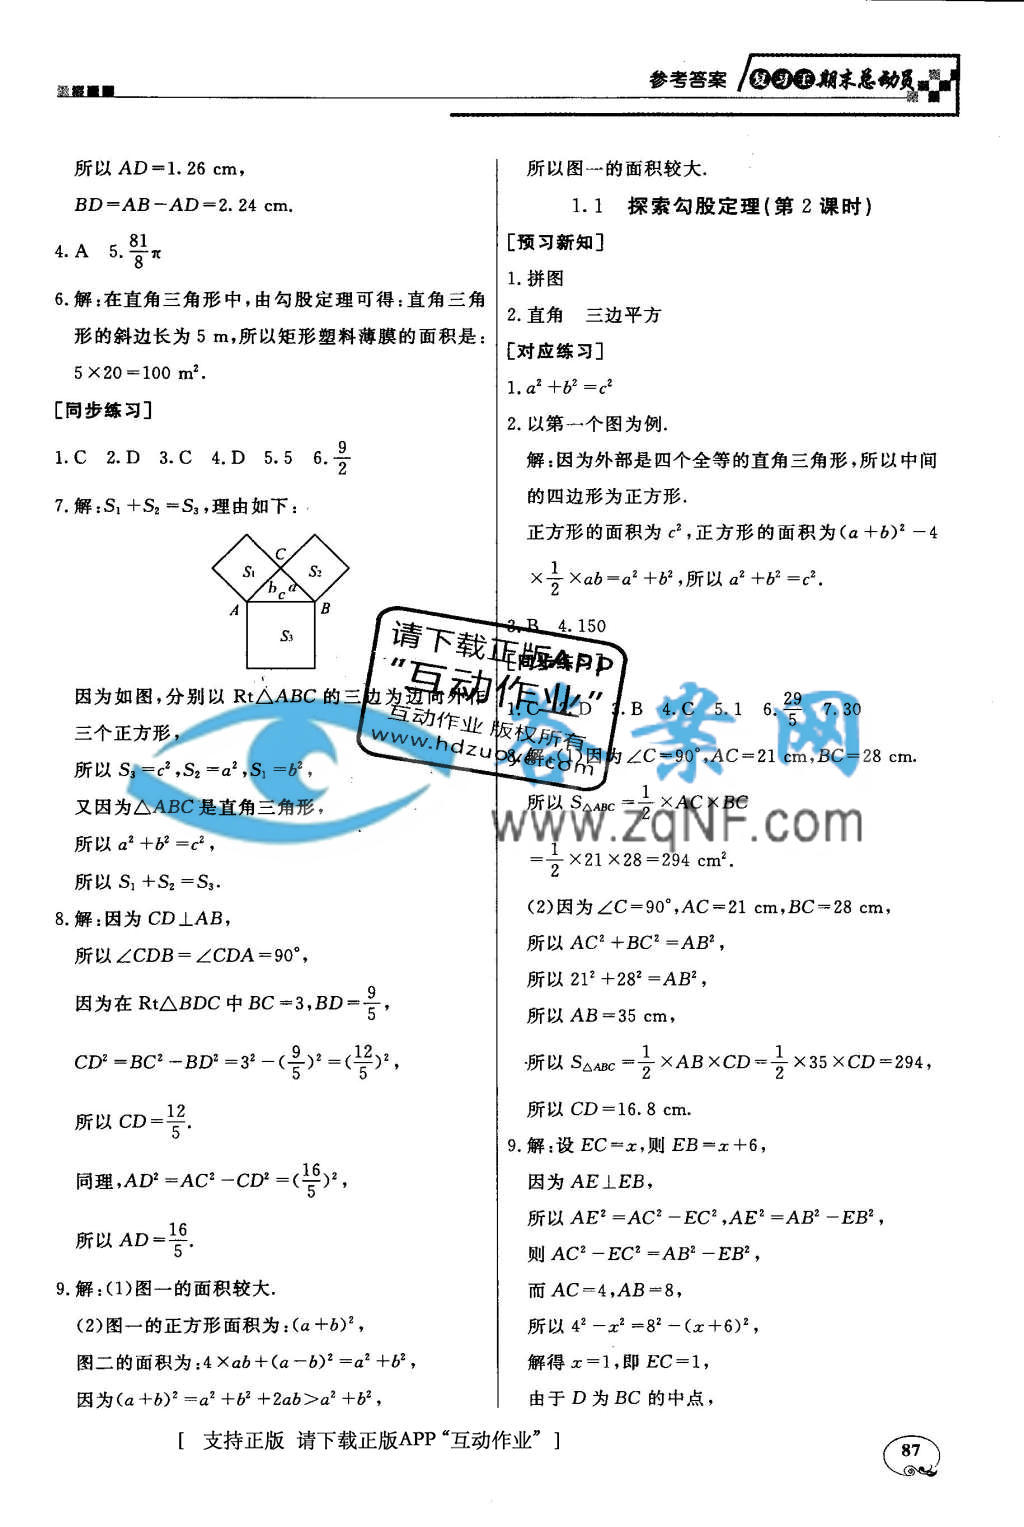 参考答案 复习王期末总动员
所以 AD=1.26 cm,
BD=AB-AD=2.24 cm.
4. A 5. 81/8 π
6. 解:在直角三角形中,由勾股定理可得:直角三角
形的斜边长为 5 m,所以矩形塑料薄膜的面积是:
5×20=100 m².
[同步练习]
1. C 2. D 3. C 4. D 5. 5 6. 9/2
7. 解:S₁+S₂=S₃,理由如下:
C
S₁ S₂
b a
c
A B
S₃
因为如图,分别以 Rt△ABC 的三边为边向外作
三个正方形,
所以 S₃=c²,S₂=a²,S₁=b²,
又因为△ABC 是直角三角形,
所以 a²+b²=c²,
所以 S₁+S₂=S₃.
8. 解:因为 CD⊥AB,
所以∠CDB=∠CDA=90°,
因为在 Rt△BDC 中 BC=3,BD=9/5,
CD²=BC²-BD²=3²-(9/5)²=(12/5)²,
所以 CD=12/5.
同理,AD²=AC²-CD²=(16/5)²,
所以 AD=16/5.
9. 解:(1)图一的面积较大.
(2)图一的正方形面积为:(a+b)²,
图二的面积为:4×ab+(a-b)²=a²+b²,
因为(a+b)²=a²+b²+2ab>a²+b²,
所以图一的面积较大.
1.1 探索勾股定理(第 2 课时)
[预习新知]
1. 拼图
2. 直角 三边平方
[对应练习]
1. a²+b²=c²
2. 以第一个图为例.
解:因为外部是四个全等的直角三角形,所以中间
的四边形为正方形.
正方形的面积为 c²,正方形的面积为(a+b)²-4
×1/2×ab=a²+b²,所以 a²+b²=c².
3. B 4. 150
[同步练习]
1. C 2. D 3. B 4. C 5. 1 6. 29/5 7. 30
8. 解:(1)因为∠C=90°,AC=21 cm,BC=28 cm.
所以 S△ABC=1/2×AC×BC
=1/2×21×28=294 cm².
(2)因为∠C=90°,AC=21 cm,BC=28 cm,
所以 AC²+BC²=AB²,
所以 21²+28²=AB²,
所以 AB=35 cm,
所以 S△ABC=1/2×AB×CD=1/2×35×CD=294,
所以 CD=16.8 cm.
9. 解:设 EC=x,则 EB=x+6,
因为 AE⊥EB,
所以 AE²=AC²-EC²,AE²=AB²-EB²,
则 AC²-EC²=AB²-EB²,
而 AC=4,AB=8,
所以 4²-x²=8²-(x+6)²,
解得 x=1,即 EC=1,
由于 D 为 BC 的中点,
请下载正版APP
“互动作业”
互动作业 版权所有
www.hdzuoye.com
答案网
www.zqNF.com
[ 支持正版 请下载正版APP“互动作业” ]
87